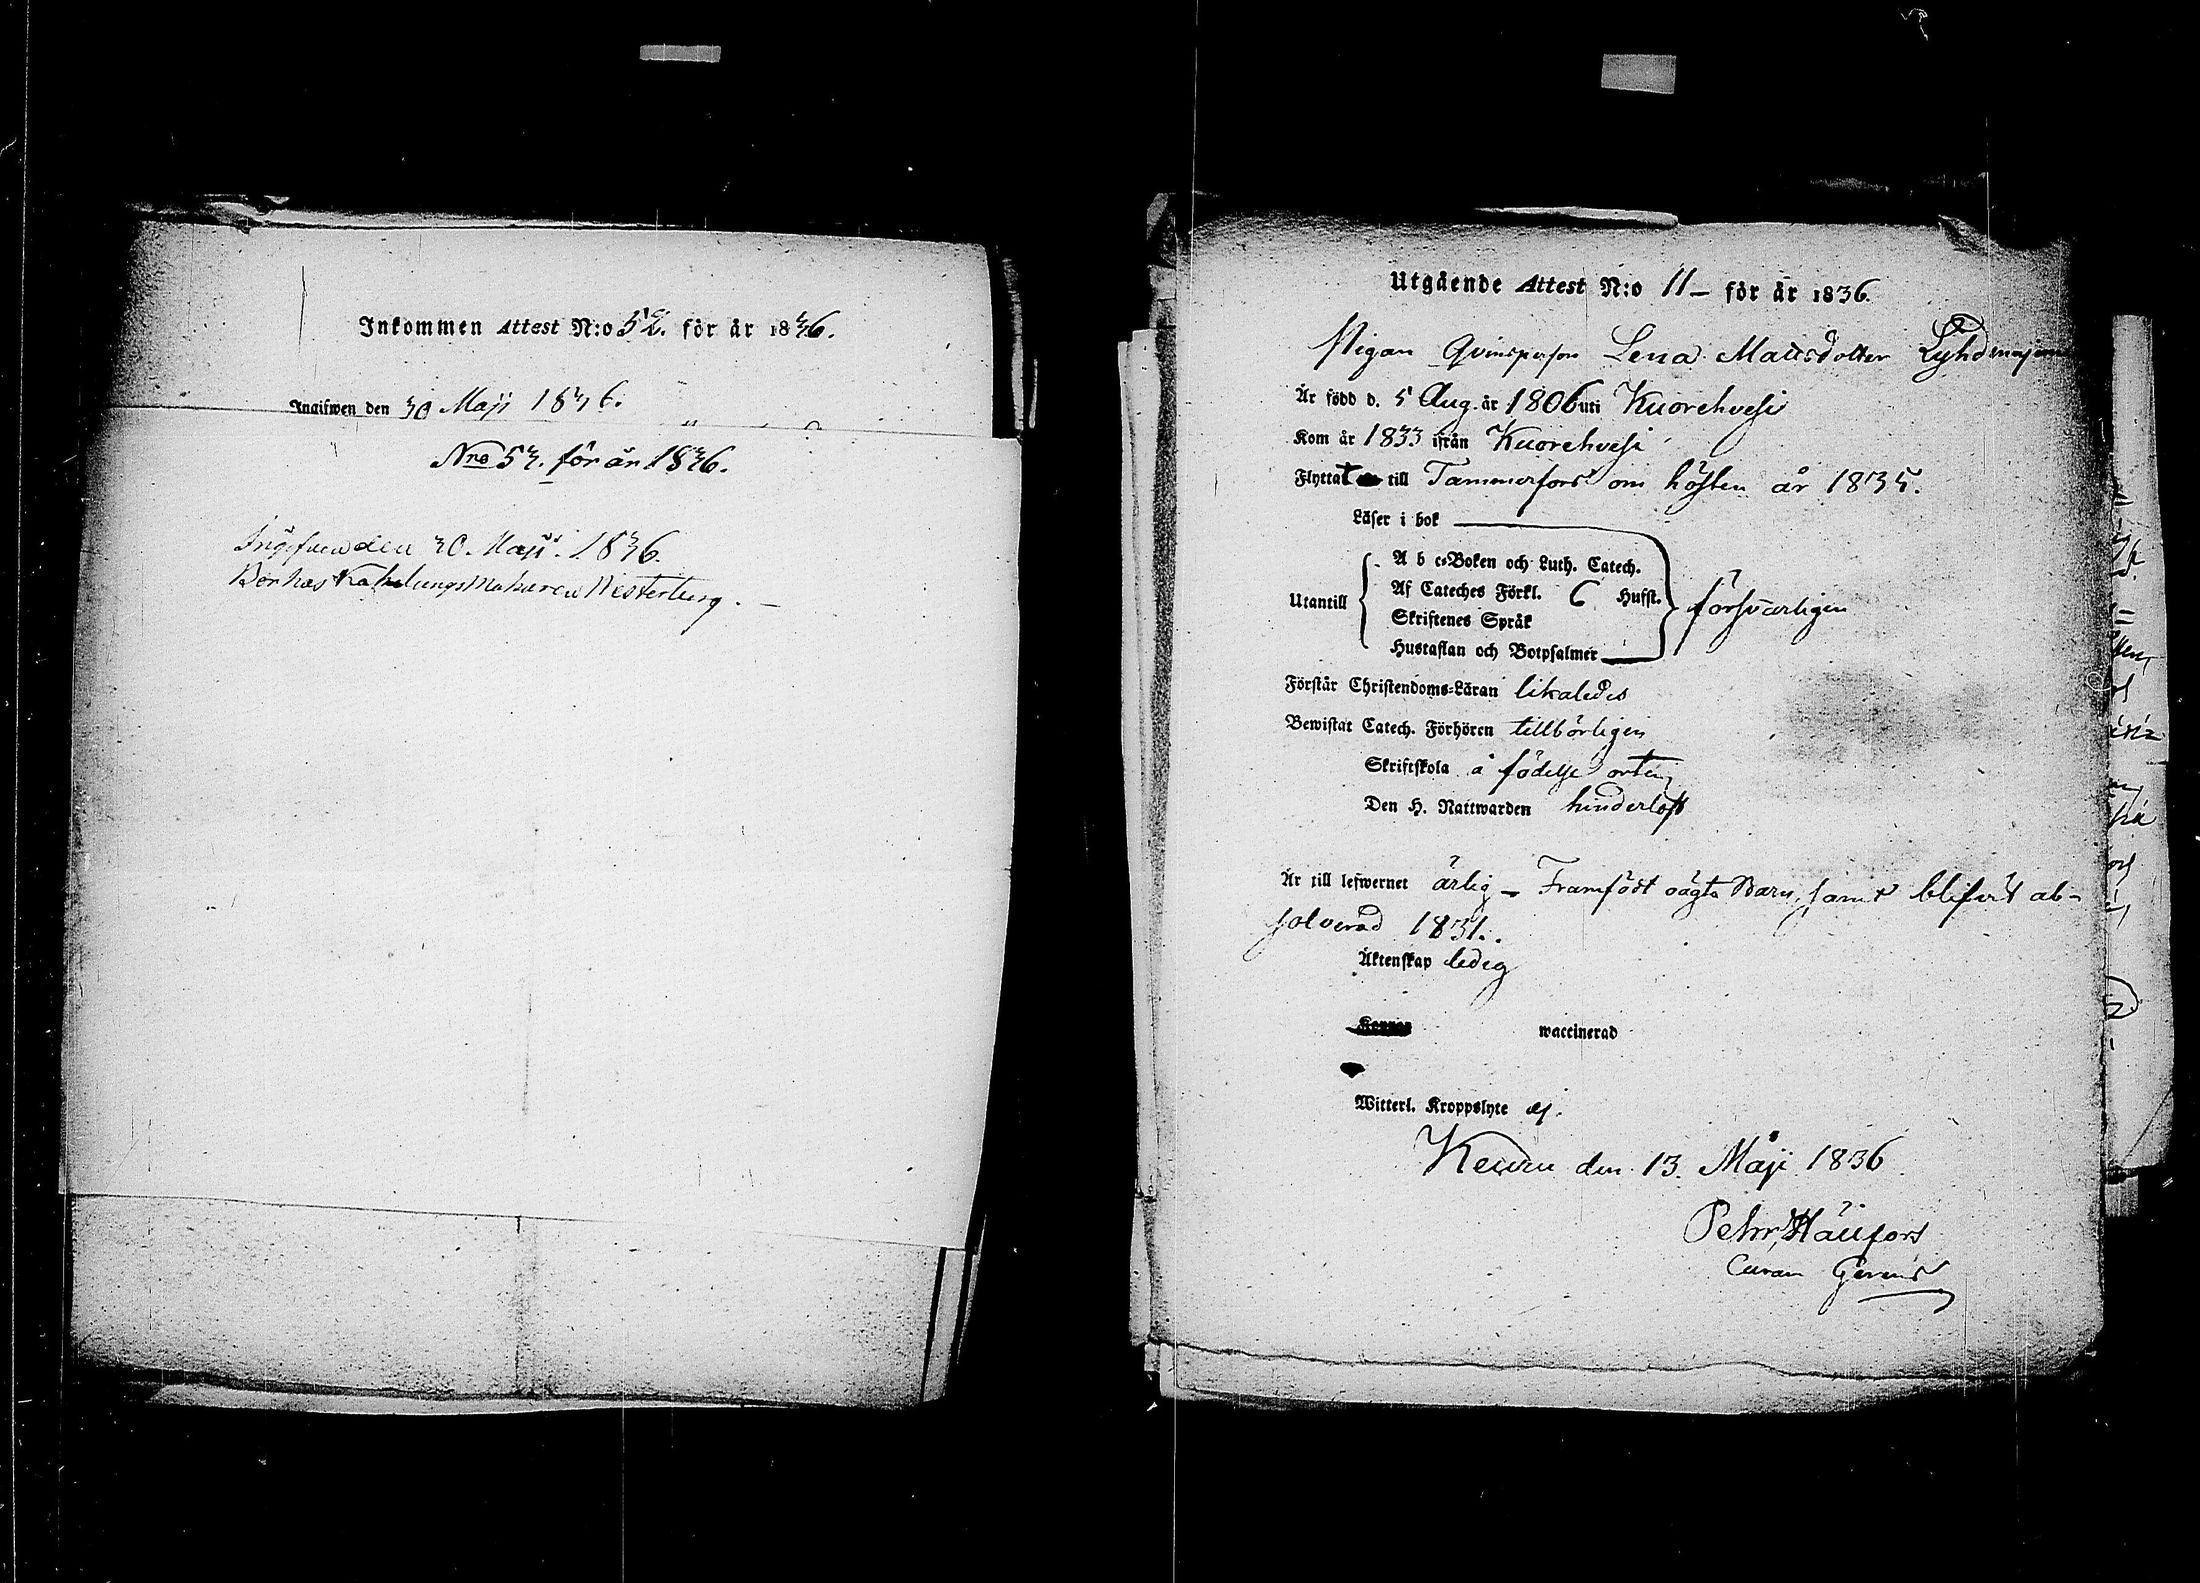 Inkommen Attest N:o 52. för år 1836.
Ingifwen den 30 Maji 1836.
Nro 53. för år 1836.
Ingifven den 30. Maji. 1836.
Bor hos KakelungsMakaren Westerberg. –
Utgående Attest N:o 11 – för år 1836.
Pigan Qvinsperson Lena Matsdotter
Är född d. 5 Aug. år 1806 uti Kuorehvesi
Kom år 1833 ifrån Kuorehvesi
Flyttat till Tammerfors om hösten år 1835.
Läser i bok
A b c-Boken och Luth. Catech.
Af Cateches Förkl. 6 Hufst.
Utantill försvarligen
Skriftenes Språk
Hustaflan och Botpsalmer
Förstår Christendoms-Läran likaledes
Bewistat Catech. Förhören tillbörligen
Skriftskola å födelse orten
Den H. Nattwarden hinderlöst
Är till lefwernet ärlig – Framfödt oägta Barn, samt blifvit ab-
solverad 1831.
Äktenskap ledig
Koppor waccinerad
Witterl. Kroppslyte ej.
Keuru den 13. Maji 1836
Pehr
Curam Gerens